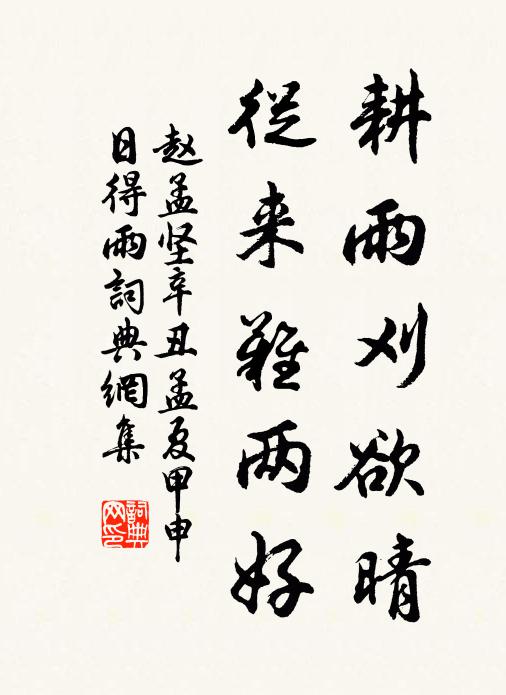 耕雨刈欲晴
從来難两好
赵孟坚辛丑孟夏甲申
日得雨詞典網集
詞典网印